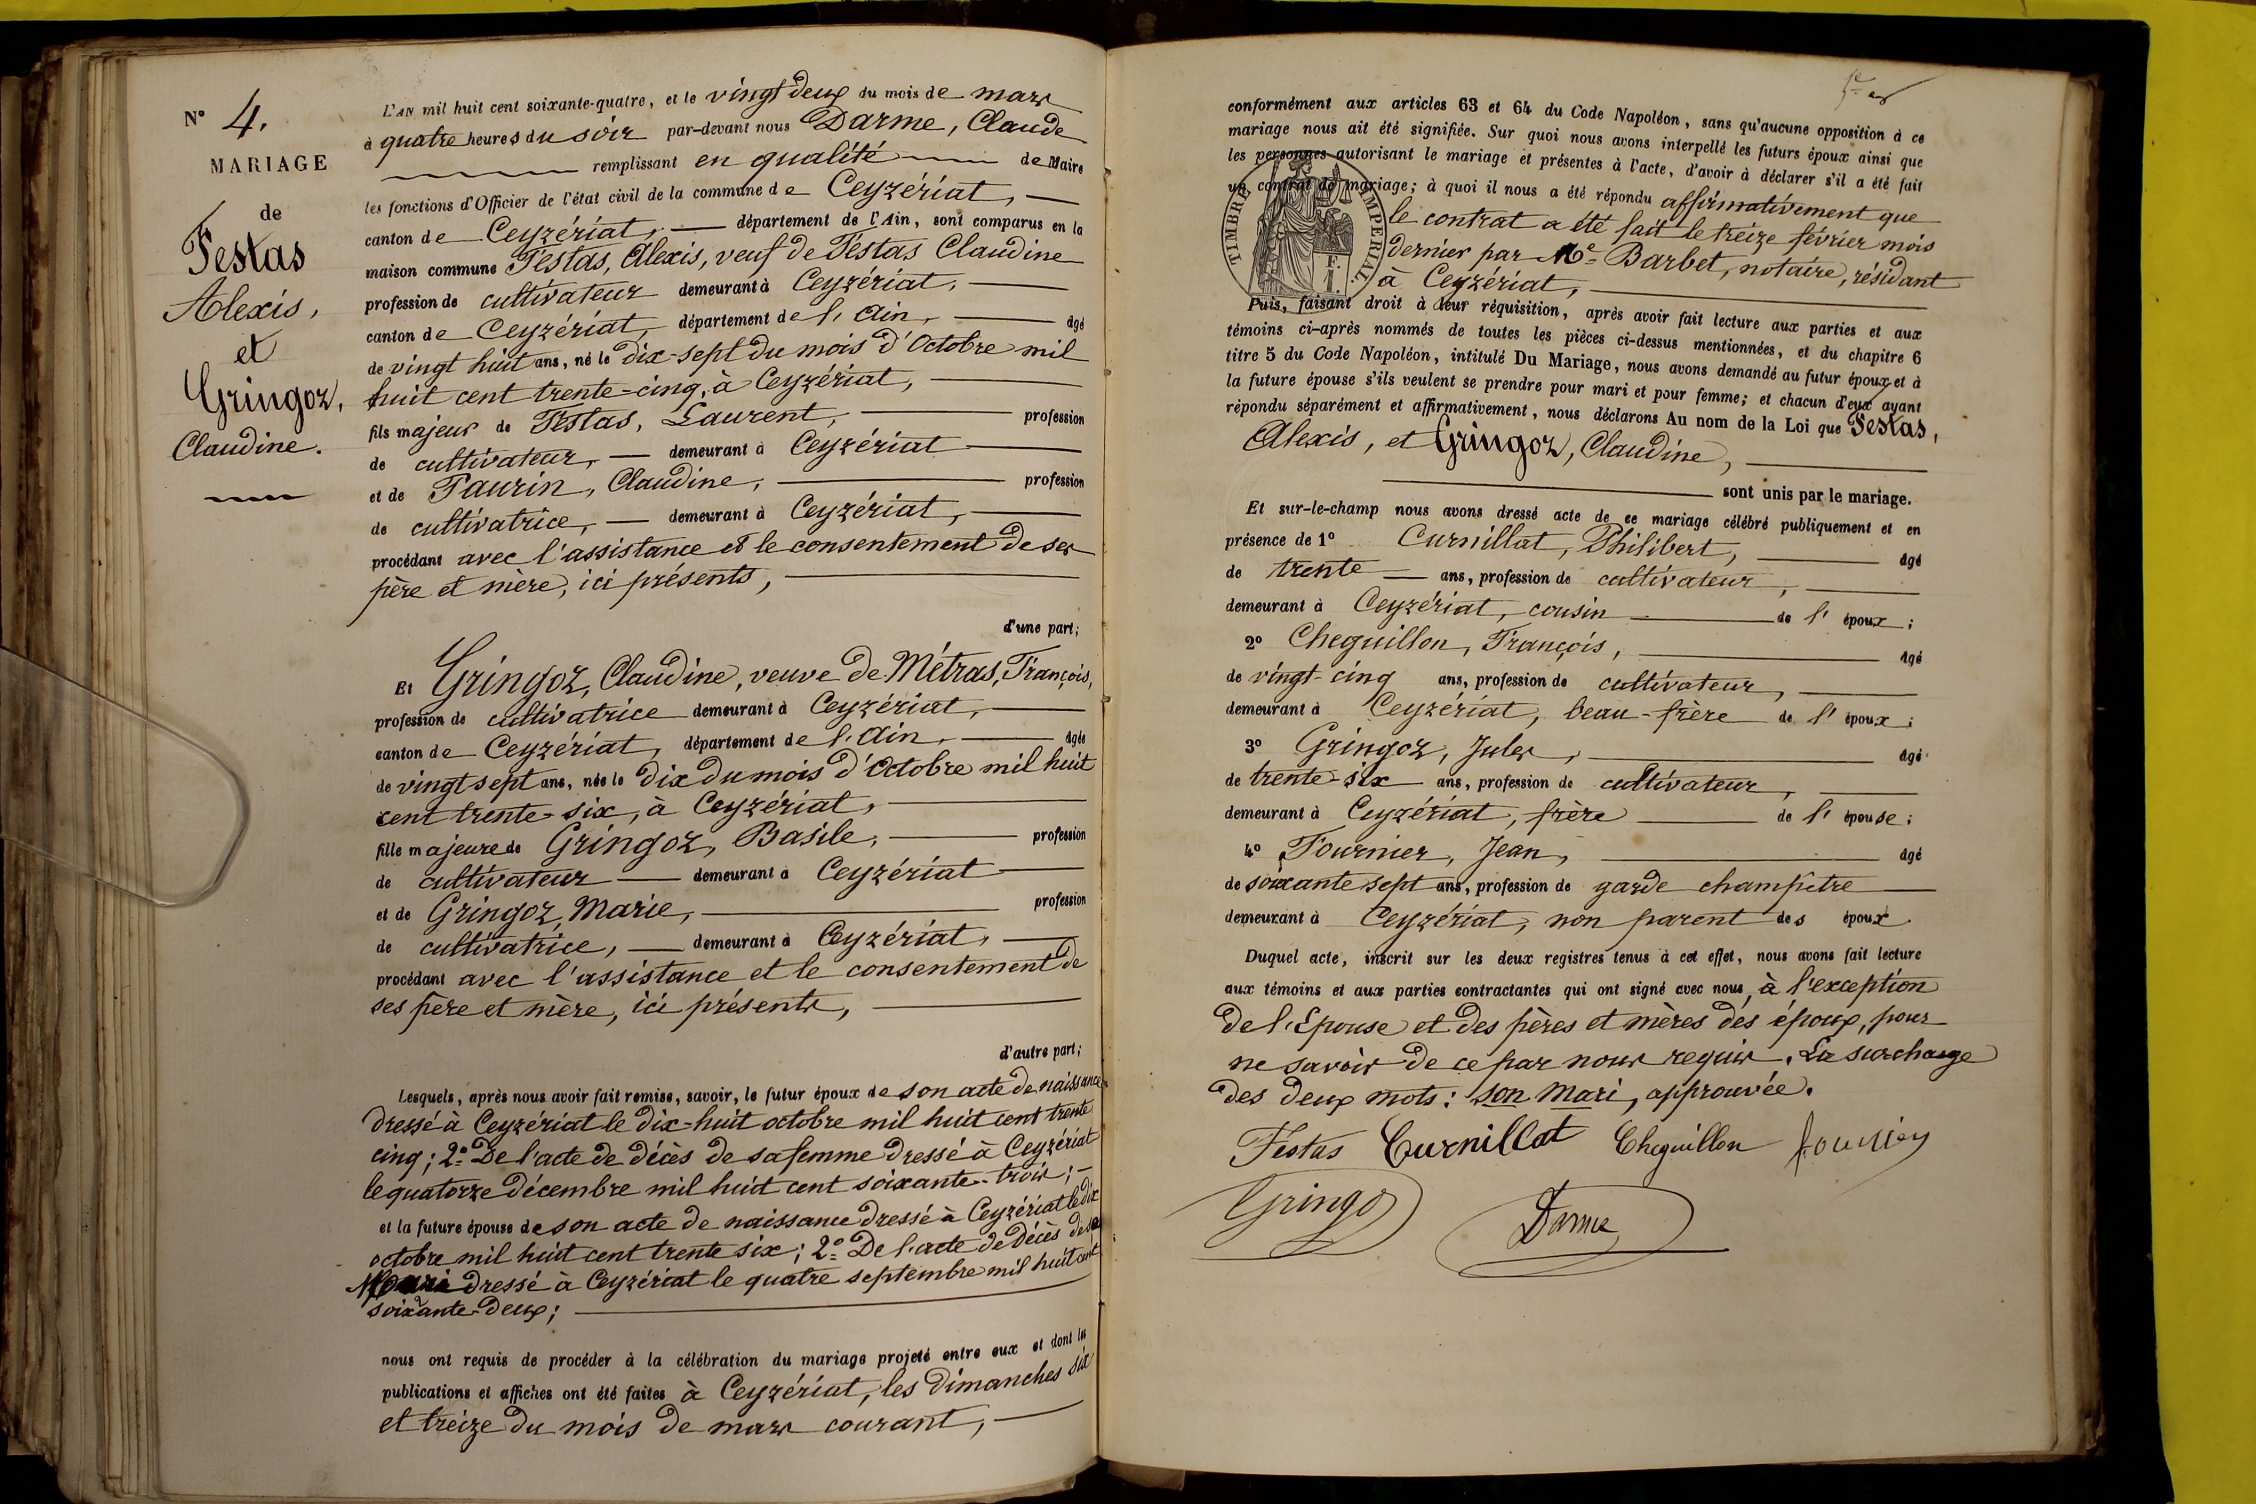 N° 4.
MARIAGE
de
Festas
Alexis,
et
Gringoz,
Claudine.
L'AN mil huit cent soixante-quatre, et le vingt deux du mois de mars
à quatre heures du soir par-devant nous Darme, Claude
remplissant en qualité de Maire
les fonctions d'Officier de l'état civil de la commune de Ceyzériat,
canton de Ceyzériat, département de l'Ain, sont comparus en la
maison commune Festas, Alexis, veuf de Festas Claudine
profession de cultivateur demeurant à Ceyzériat,
canton de Ceyzériat, département de l'Ain, âgé
de vingt huit ans, né le dix-sept du mois d'Octobre mil
huit cent trente-cinq, à Ceyzériat,
fils majeur de Festas, Laurent, profession
de cultivateur, demeurant à Ceyzériat
et de Faurin, Claudine, profession
de cultivatrice, demeurant à Ceyzériat,
procédant avec l'assistance et le consentement de ses
père et mère, ici présents,
d'une part;
Et Gringoz, Claudine, veuve de Métras, François,
profession de cultivatrice demeurant à Ceyzériat,
canton de Ceyzériat, département de l'Ain, âgée
de vingt sept ans, née le dix du mois d'Octobre mil huit
cent trente-six, à Ceyzériat,
fille majeure de Gringoz, Basile, profession
de cultivateur demeurant à Ceyzériat
et de Gringoz, Marie, profession
de cultivatrice, demeurant à Ceyzériat,
procédant avec l'assistance et le consentement de
ses père et mère, ici présents,
d'autre part;
Lesquels, après nous avoir fait remise, savoir, le futur époux de son acte de naissance
dressé à Ceyzériat le dix-huit octobre mil huit cent trente
cinq; 2° De l'acte de décès de sa femme dressé à Ceyzériat
le quatorze décembre mil huit cent soixante-trois;
et la future épouse de son acte de naissance dressé à Ceyzériat le dix
octobre mil huit cent trente six; 2° De l'acte de décès de son
Mari dressé à Ceyzériat le quatre septembre mil huit cent
soixante-deux;
nous ont requis de procéder à la célébration du mariage projeté entre eux et dont les
publications et affiches ont été faites à Ceyzériat, les dimanches six
et treize du mois de mars courant,
conformément aux articles 63 et 64 du Code Napoléon, sans qu'aucune opposition à ce
mariage nous ait été signifiée. Sur quoi nous avons interpellé les futurs époux ainsi que
les personnes autorisant le mariage et présentes à l'acte, d'avoir à déclarer s'il a été fait
un contrat de mariage; à quoi il nous a été répondu affirmativement que
le contrat a été fait le treize février mois
dernier par Me Barbet, notaire, résidant
à Ceyzériat,
TIMBRE IMPÉRIAL
Puis, faisant droit à leur réquisition, après avoir fait lecture aux parties et aux
témoins ci-après nommés de toutes les pièces ci-dessus mentionnées, et du chapitre 6
titre 5 du Code Napoléon, intitulé Du Mariage, nous avons demandé au futur époux et à
la future épouse s'ils veulent se prendre pour mari et pour femme; et chacun d'eux ayant
répondu séparément et affirmativement, nous déclarons Au nom de la Loi que Festas,
Alexis, et Gringoz, Claudine,
sont unis par le mariage.
Et sur-le-champ nous avons dressé acte de ce mariage célébré publiquement et en
présence de 1° Curnillat, Philibert, âgé
de trente ans, profession de cultivateur,
demeurant à Ceyzériat, cousin de l'époux;
2° Cheguillon, François, âgé
de vingt-cinq ans, profession de cultivateur,
demeurant à Ceyzériat, beau-frère de l'époux;
3° Gringoz, Jules, âgé
de trente-six ans, profession de cultivateur,
demeurant à Ceyzériat, frère de l'épouse;
4° Fournier, Jean, âgé
de soixante sept ans, profession de garde champêtre
demeurant à Ceyzériat, non parent des époux
Duquel acte, inscrit sur les deux registres tenus à cet effet, nous avons fait lecture
aux témoins et aux parties contractantes qui ont signé avec nous, à l'exception
de l'Epouse et des pères et mères des époux, pour
ne savoir de ce par nous requis. La surcharge
des deux mots: son mari, approuvée.
Festas Curnillat Cheguillon fournier
Gringo
Darme